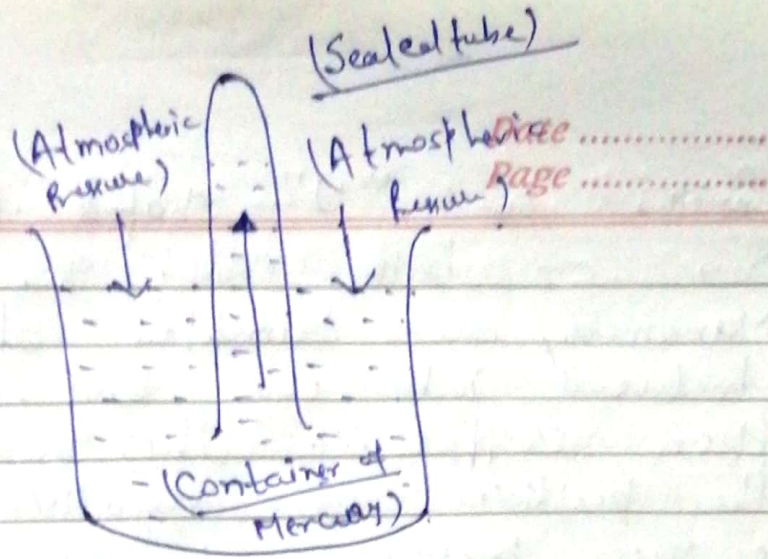 (Sealed tube)
(Atmospheric
Pressure)
(Atmospheric
Pressure)
Date ..................
Page ..................
(Container of
Mercury)